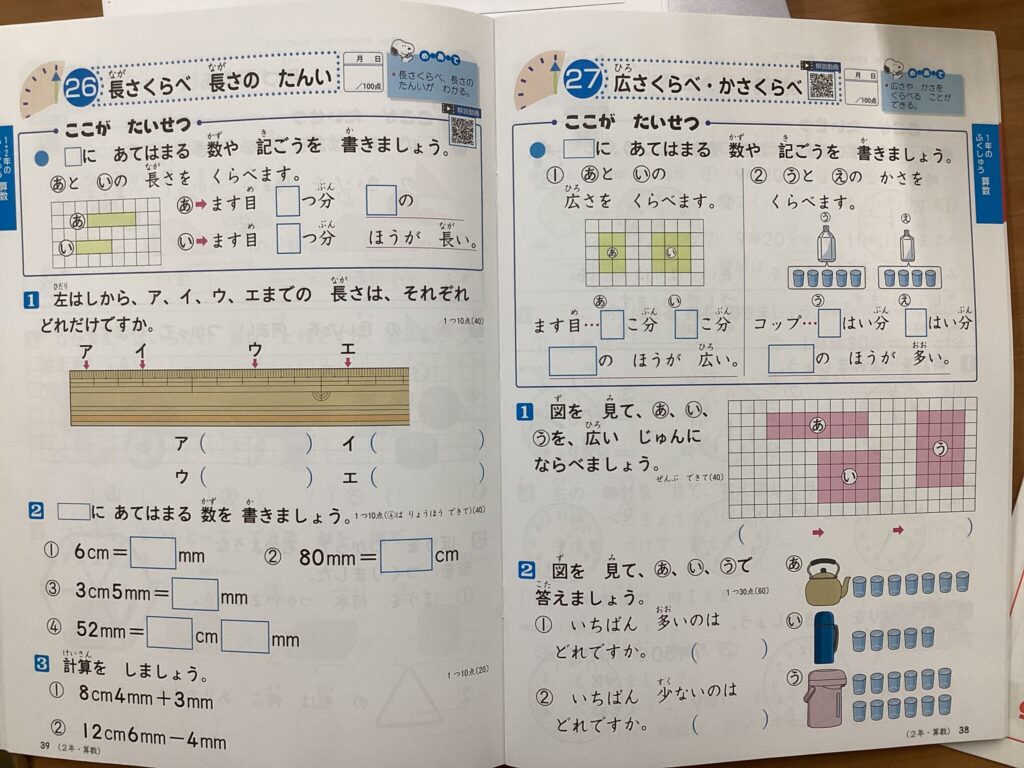 26 長さくらべ 長さの たんい
月 日
/100点
めあて
・長さくらべ、長さの
たんいが わかる。
解説動画
1・2年の
ふくしゅう 算数
ここが たいせつ
● □に あてはまる 数や 記ごうを 書きましょう。
あと いの 長さを くらべます。
あ
い
あ➡ます目 □つ分
い➡ます目 □つ分
□の
ほうが 長い。
1 左はしから、ア、イ、ウ、エまでの 長さは、それぞれ
どれだけですか。
1つ10点(40)
ア イ ウ エ
ア( ) イ( )
ウ( ) エ( )
2 □に あてはまる 数を 書きましょう。 1つ10点(④は りょうほう できて)(40)
① 6cm=□mm ② 80mm=□cm
③ 3cm5mm=□mm
④ 52mm=□cm□mm
3 計算を しましょう。
1つ10点(20)
① 8cm4mm+3mm
② 12cm6mm−4mm
39 (2年・算数)
27 広さくらべ・かさくらべ
解説動画
月 日
/100点
めあて
・広さや かさを
くらべる ことが
できる。
1年の
ふくしゅう 算数
ここが たいせつ
● □に あてはまる 数や 記ごうを 書きましょう。
① あと いの
広さを くらべます。
あ い
あ い
ます目…□こ分 □こ分
□の ほうが 広い。
② うと えの かさを
くらべます。
う え
う え
コップ…□はい分 □はい分
□の ほうが 多い。
1 図を 見て、あ、い、
うを、広い じゅんに
ならべましょう。
ぜんぶ できて(40)
あ
い
う
( ➡ ➡ )
2 図を 見て、あ、い、うで
答えましょう。
1つ30点(60)
① いちばん 多いのは
どれですか。 ( )
② いちばん 少ないのは
どれですか。 ( )
あ
い
う
(2年・算数) 38